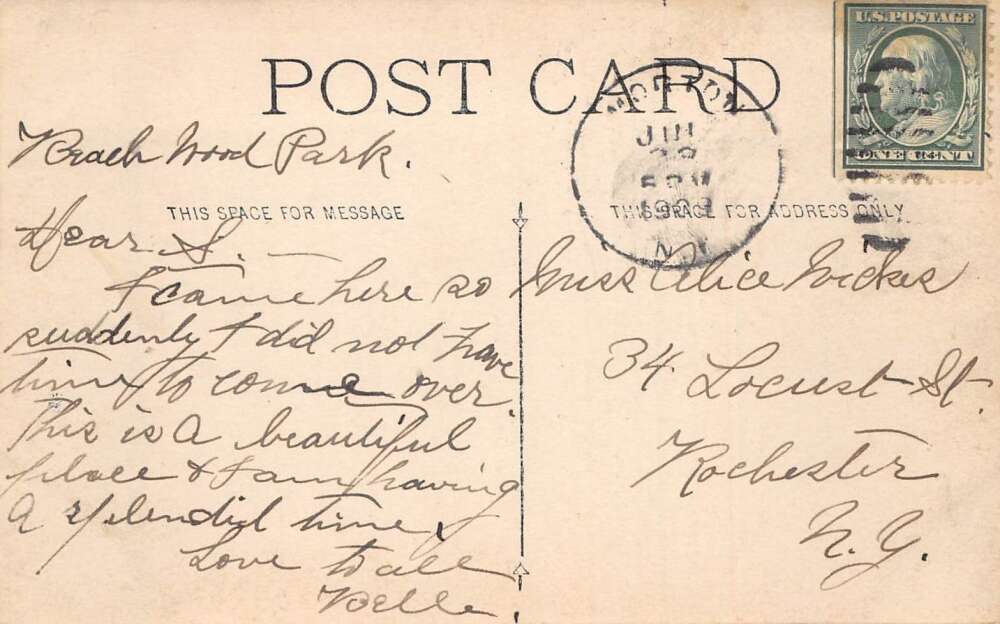 POST CARD
U.S. POSTAGE
ONE CENT
MORTON
JUL
28
5 PM
1909
N.Y.
Beach Wood Park.
THIS SPACE FOR MESSAGE
Dear S.
I came here so
suddenly I did not have
time to come over.
This is a beautiful
place & I am having
a splendid time.
Love to all
Belle.
THIS SPACE FOR ADDRESS ONLY
Miss Alice Wickes
34 Locust St.
Rochester
N.Y.